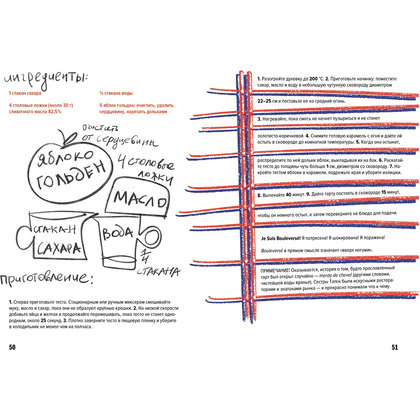 ингредиенты:
1 стакан сахара
4 столовые ложки (около 30 г)
сливочного масла 82,5%
¼ стакана воды
5 яблок гольден: очистить, удалить
сердцевину, нарезать дольками
очистить
от сердцевины
ЯБЛОКО
ГОЛЬДЕН
4 столовое
ложки
МАСЛО
СТАКАН
САХАРА
ВОДА
1/4
СТАКАНА
Приготовление:
1. Сперва приготовьте тесто. Стационарным или ручным миксером смешивайте
муку, масло и сахар, пока они не образуют крупные крошки. 2. На низкой скорости
добавьте яйца и желток и продолжайте перемешивать, пока тесто не станет одно-
родным, около 25 секунд. 3. Плотно заверните тесто в пищевую пленку и уберите
в холодильник не менее чем на полчаса.
50
1. Разогрейте духовку до 200 °C. 2. Приготовьте начинку: поместите
сахар, масло и воду в небольшую чугунную сковороду диаметром
22–25 см и поставьте ее на средний огонь.
3. Нагревайте, пока смесь не начнет пузыриться и не станет
золотисто-коричневой. 4. Снимите готовую карамель с огня и дайте ей
остыть в сковороде до комнатной температуры. 5. Когда она остынет,
распределите по ней дольки яблок, выкладывая их на бок. 6. Раскатай-
те тесто до толщины чуть больше 1 см, диаметром со сковороду. 7. На-
кройте тестом яблоки в карамели, подрежьте края и уберите излишки.
8. Выпекайте 40 минут. 9. Дайте тарту постоять в сковороде 15 минут,
чтобы он немного остыл, а затем переверните на блюдо для подачи.
Je Suis Bouleversé! Я потрясена! Я шокирована! Я поражена!
Bouleversé в прямом смысле означает «вверх ногами».
ПРИМЕЧАНИЕ! Оказывается, история о том, будто прославленный
тарт был открыт случайно, — merde de cheval (другими словами,
чистейшей воды вранье). Сестры Татен были искусными рестора-
торами и знатоками рынка — и прекрасно понимали что к чему.
51